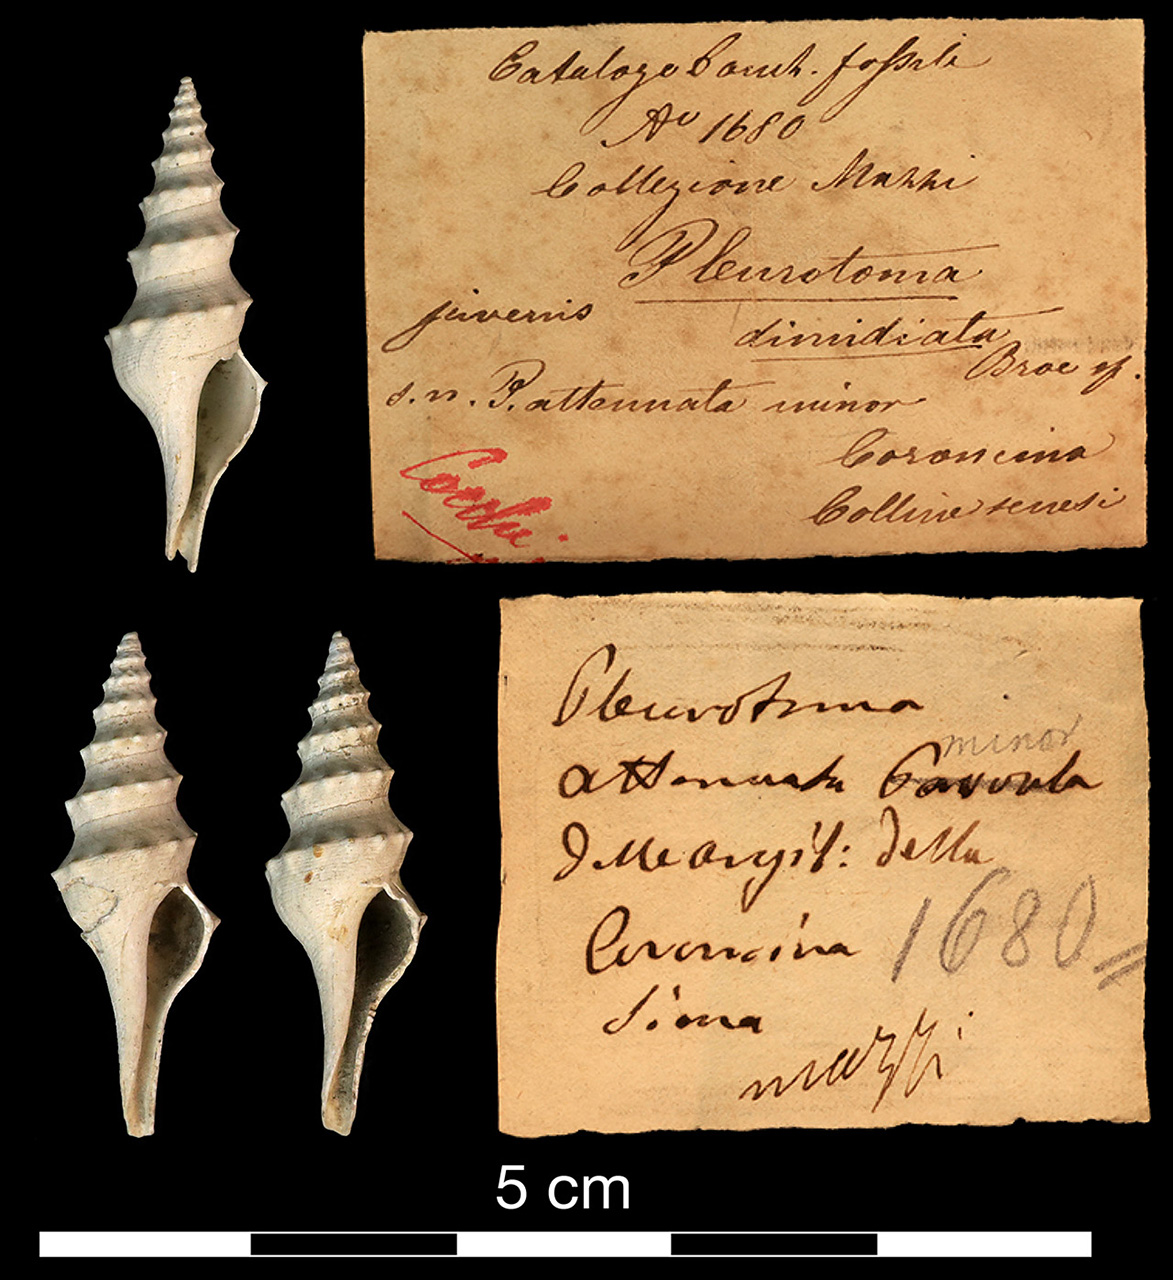 Catalogo Conch. fossili
No 1680
Collezione Mazzi
Pleurotoma
juvenis
dimidiata
Broc sp.
s.n. P. attenuata minor
Coroncina
Colline senesi
Cocchi
Pleurotoma
minor
attenuata Parvula
delle Argil: della
Coroncina
1680=
Siena
mazzi
5 cm